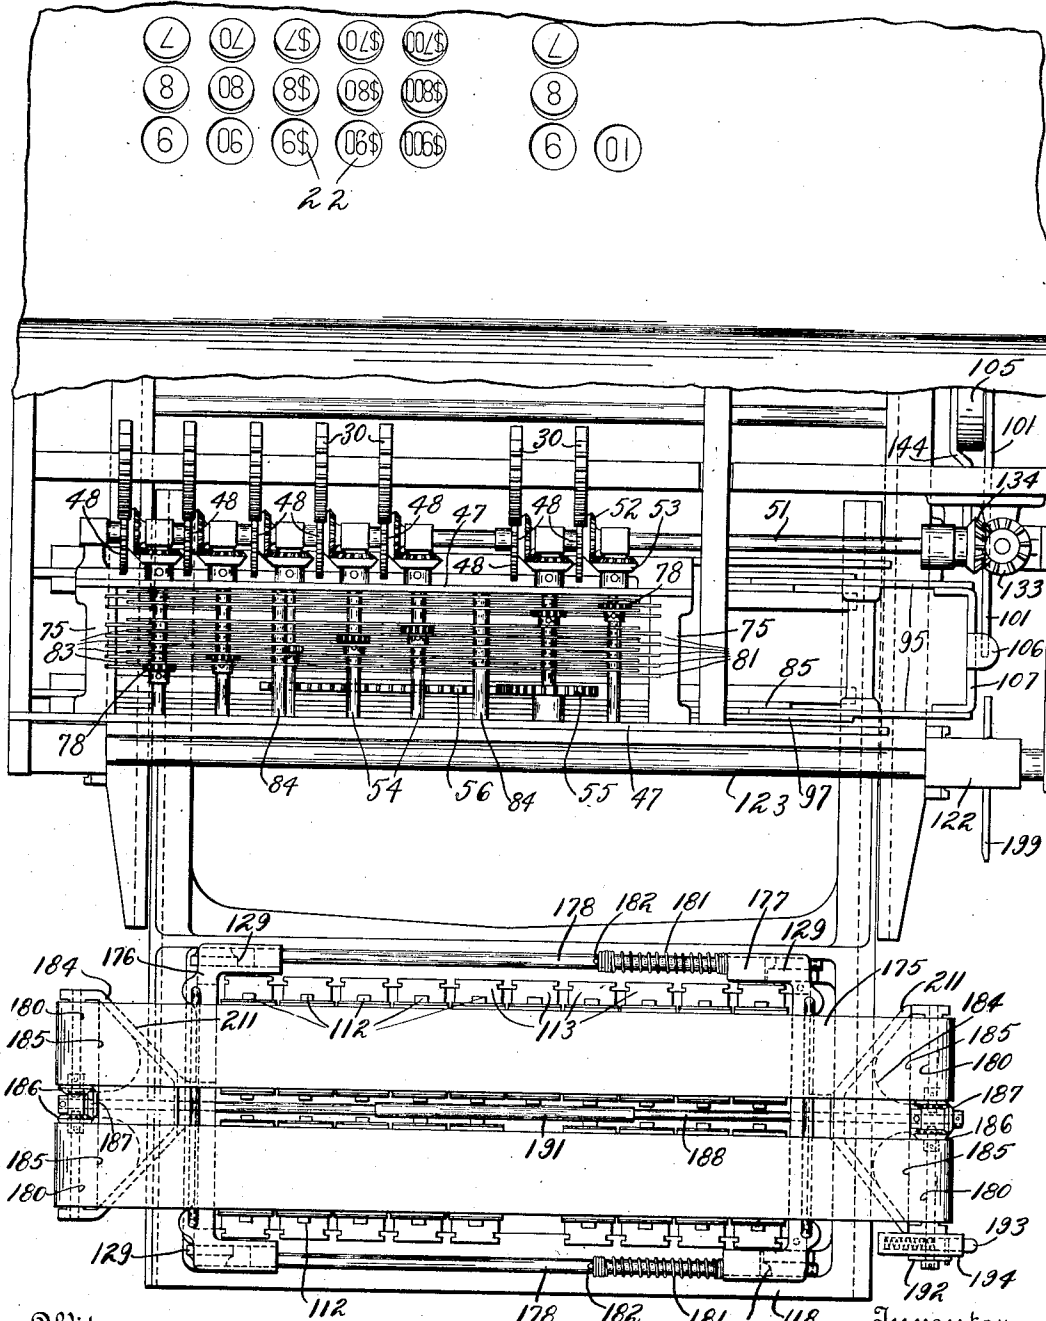 7 70 $7 $70 $700 7
8 80 $8 $80 $800 8
9 90 $9 $90 $900 9 10
22
105
30 30 144 101
48 48 48 48 47 48 52 53 51 134
48 78 133
75 75 101
83 81 85 95 106
78 107
78 84 54 56 84 55 47 123 97 122
199
129 178 182 181 177 129
184 176 175 211
180 211 112 113 184
185 185
180
186 187
187 191 188 186
185 185
180 180
193
129 192 194
112 178 182 181 118
Inventor